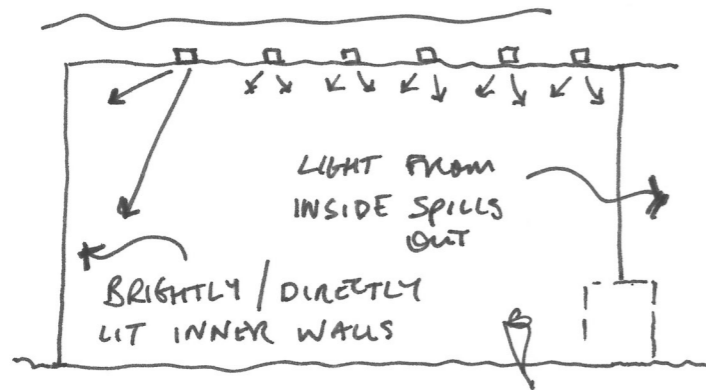 LIGHT FROM
INSIDE SPILLS
OUT
BRIGHTLY / DIRECTLY
LIT INNER WALLS